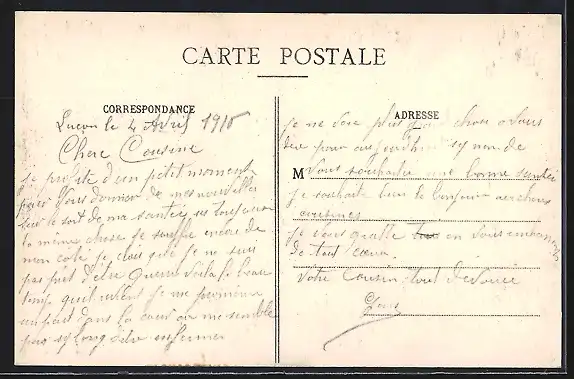 CARTE POSTALE
CORRESPONDANCE
Luçon le 4 Avril 1915
Chere Cousine
je profite d'un petit moment
pour vous donner de mes nouvelles
sur le sort de ma santé,
la même chose je souffre encore de
mon coté je crois que je ne suis
pas pret d'etre Gueri voila le beau
temps qui je me promene
un peut dans la cour on me semble
pas long d'etre enfermer
ADRESSE
je ne vois plus chose a vous
dire pour aujourd'hui
M
Vous souhaite une bonne santée
je souhaite bien le bonjour
cousines
je vous quitte en vous
de tout cœur
Votre Cousin tout Devouée